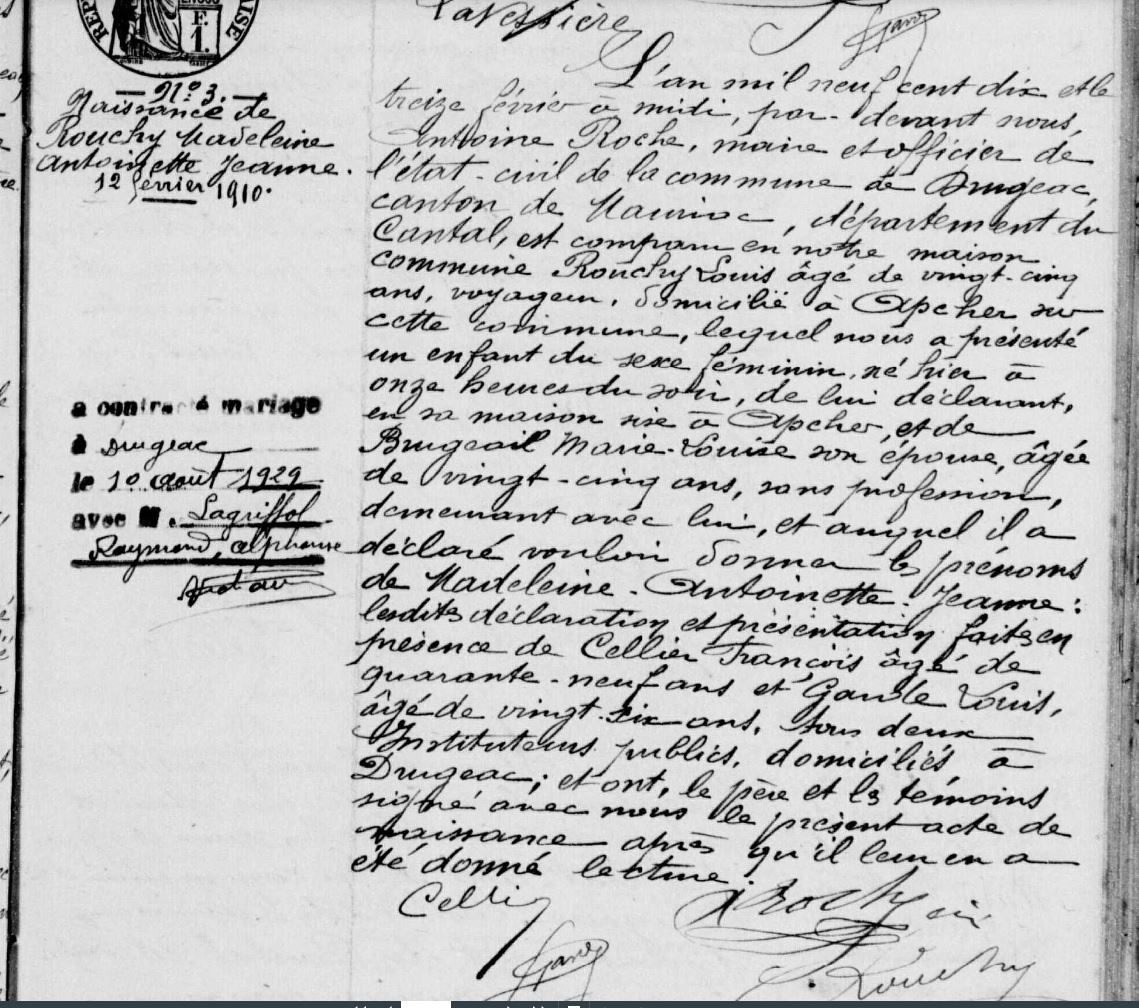 Lavessière
F.
1.
— N° 3. —
Naissance de
Rouchy Madeleine
Antoinette Jeanne.
12 février 1910.
a contracté mariage
à Drugeac
le 10 août 1929
avec M. Lagriffol
Raymond, Alphonse
L'an mil neuf cent dix et le
treize février à midi, par-devant nous,
Antoine Roche, maire et officier de
l'état-civil de la commune de Drugeac,
canton de Mauriac, département du
Cantal, est comparu en notre maison
commune Rouchy Louis âgé de vingt-cinq
ans, voyageur, domicilié à Apcher sur
cette commune, lequel nous a présenté
un enfant du sexe féminin, né hier à
onze heures du soir, de lui déclarant,
en sa maison sise à Apcher, et de
Brugeail Marie-Louise son épouse, âgée
de vingt-cinq ans, sans profession,
demeurant avec lui, et auquel il a
déclaré vouloir donner les prénoms
de Madeleine-Antoinette-Jeanne:
lesdits déclaration et présentation faites en
présence de Cellier François âgé de
quarante-neuf ans et Garde Louis,
âgé de vingt-six ans, tous deux
Instituteurs publics, domiciliés à
Drugeac; et ont, le père et les témoins
signé avec nous le présent acte de
naissance après qu'il leur en a
été donné lecture.
Cellier
A Roche
Rouchy